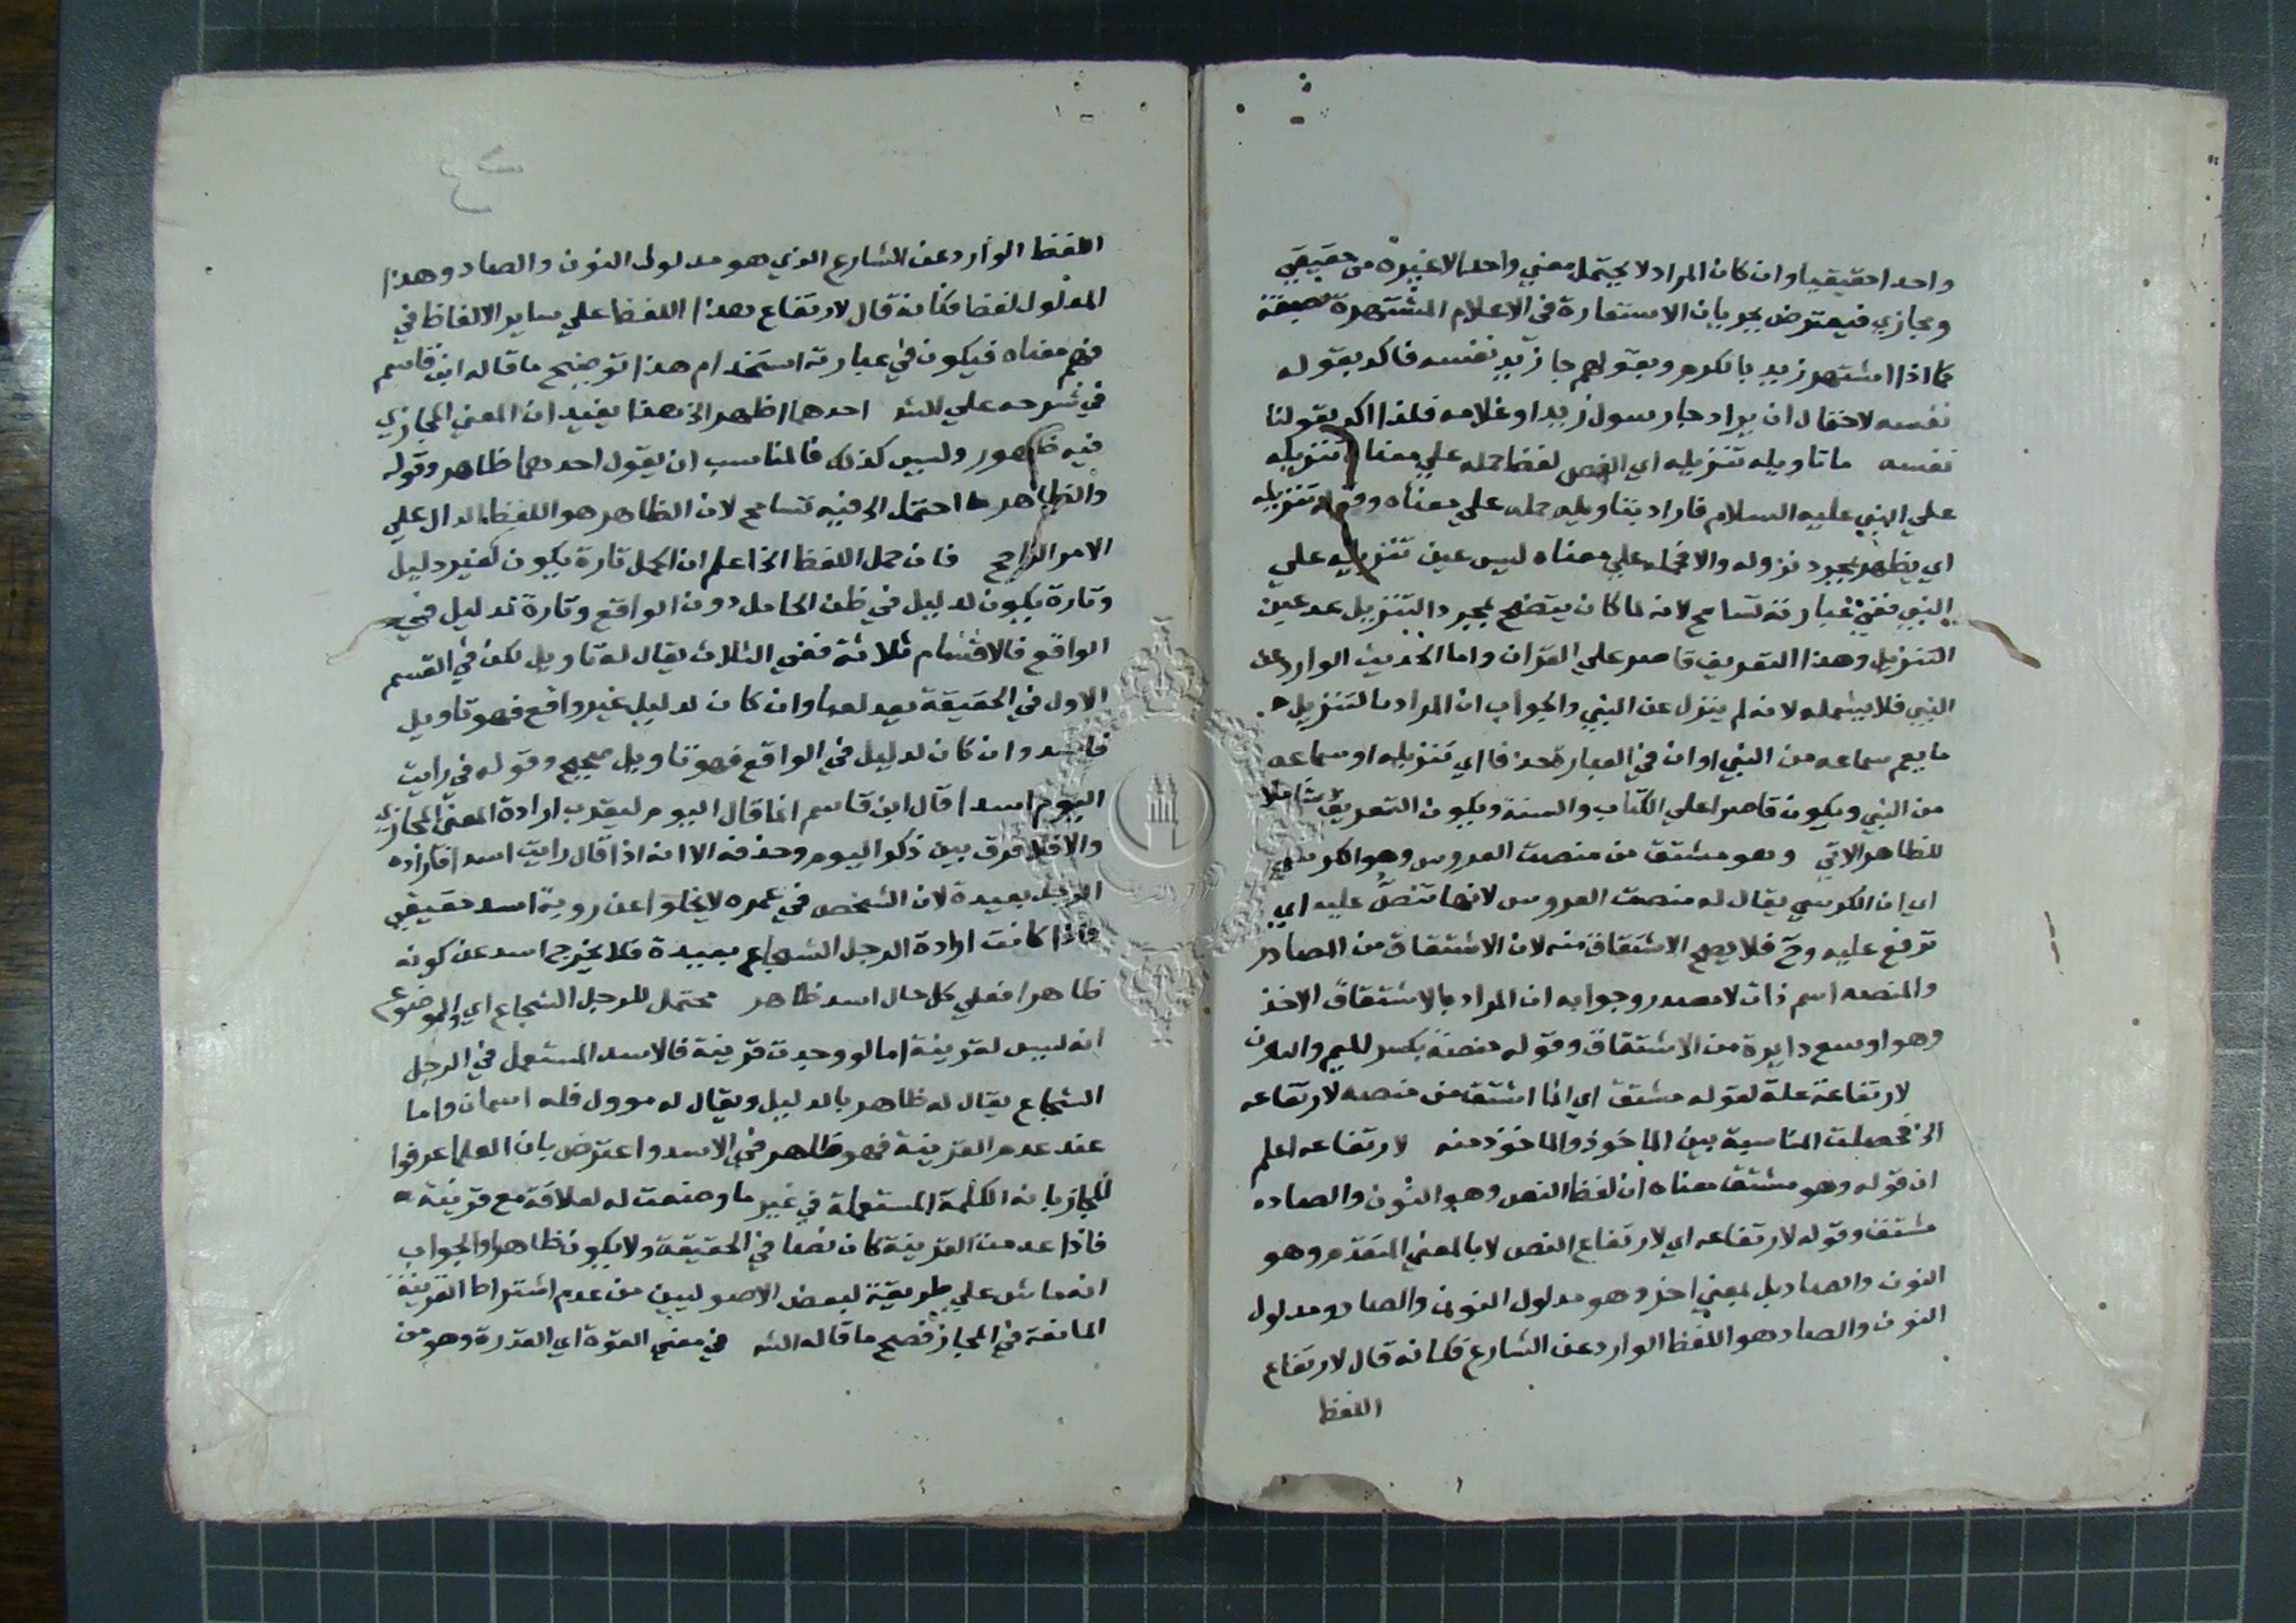 واحدا حقيقيا وان كان المراد لا يحتمل معني واحدا لا غيره من حقيقي
ومجازي فيعترض بجريان الاستعارة في الاعلام المشتهرة بصفة
كما اذا اشتهر زيد بالكرم وبقولهم جا زيد نفسه فاكد بقوله
نفسه لاحتمال ان يراد جا رسول زيد او غلامه فلذا اكد بقولنا
نفسه ما تاويله تنزيله اي النص لفظ حمله علي معناه تنزيله
علي النبي عليه السلام فاراد بتاويله حمله علي معناه وقوله تنزيله
اي يظهر بمجرد نزوله والا فحمله علي معناه ليس عين تنزيله علي
النبي ففي عبارته تسامح لانه لما كان يتضح بمجرد التنزيل عد عين
التنزيل وهذا التعريف قاصر علي القران واما الحديث الوارد عن
النبي فلا يشمله لانه لم ينزل عن النبي والجواب ان المراد بالتنزيل
ما يعم سماعه من النبي او ان في العبارة حذفا اي تنزيله او سماعه
من النبي ويكون قاصرا علي الكتاب والسنة ويكون التعريف شاملا
للظاهر الاتي وهو مشتق من منصة العروس وهو الكرسي
اي ان الكرسي يقال له منصة العروس لانها تنص عليه اي
ترفع عليه وح فلا يصح الاشتقاق منه لان الاشتقاق من المصادر
والمنصه اسم ذات لا مصدر وجوابه ان المراد بالاشتقاق الاخذ
وهو اوسع دايرة من الاشتقاق وقوله منصة بكسر الميم والنون
لارتفاعه علة لقوله مشتق اي انما اشتق من منصه لارتفاعه
الخ فحصلت المناسبة بين الماخوذ والماخوذ منه لارتفاعه اعلم
ان قوله وهو مشتق معناه ان لفظ النص وهو النون والصاد
مشتق وقوله لارتفاعه اي لارتفاع النص لا بالمعني المتقدم وهو
النون والصاد بل بمعني اخر وهو مدلول النون والصاد ومدلول
النون والصاد هو اللفظ الوارد عن الشارع فكانه قال لارتفاع
اللفظ
اللفظ الوارد عن الشارع الذي هو مدلول النون والصاد وهذا
المدلول لفظ فكانه قال لارتفاع هذا اللفظ علي ساير الالفاظ في
فهم معناه فيكون في عبارته استخدام هذا توضيح ما قاله ابن قاسم
في شرحه علي الشـ احدهما اظهر الخ هذا يفيد ان المعني المجازي
فيه ظهور وليس كذلك فالمناسب ان يقول احدهما ظاهر وقوله
والظاهر ما احتمل الخ فيه تسامح لان الظاهر هو اللفظ الدال علي
الامر الراجح فان حمل اللفظ الخ اعلم ان الحمل تارة يكون لغير دليل
وتارة يكون لدليل في ظن الحامل دون الواقع وتارة لدليل في
الواقع فالاقسام ثلاثة ففي الثلاث يقال له تاويل لكن في القسم
الاول في الحقيقة يعد لعبا وان كان لدليل غير واقع فهو تاويل
فاسد وان كان لدليل في الواقع فهو تاويل صحيح وقوله في رايت
اليوم اسدا قال ابن قاسم انما قال اليوم ليقرب ارادة المعني المجازي
والا فلا فرق بين ذكر اليوم وحذفه الا انه اذا قال رايت اسدا فارادة
الرجل بعيدة لان الشخص في عمره لا يخلوا عن روية اسد حقيقي
فاذا كانت ارادة الرجل الشجاع بعيدة فلا يخرج اسد عن كونه
ظاهرا فعلي كل حال اسد ظاهر محتمل للرجل الشجاع اي والموضوع
انه ليس لقرينة اما لو وجدت قرينة فالاسد المستعمل في الرجل
الشجاع يقال له ظاهر بالدليل ويقال له موول فله اسمان واما
عند عدم القرينة فهو ظاهر في الاسد واعترض بان العلما عرفوا
المجاز بانه الكلمة المستعملة في غير ما وضعت له لعلاقة مع قرينة
فاذا عدمت القرينة كان نصا في الحقيقة ولا يكون ظاهرا والجواب
انه ماش علي طريقة لبعض الاصوليين من عدم اشتراط القرينة
المانعة في المجاز فصح ما قاله الشـ في معني القوة اي القدرة وهو من